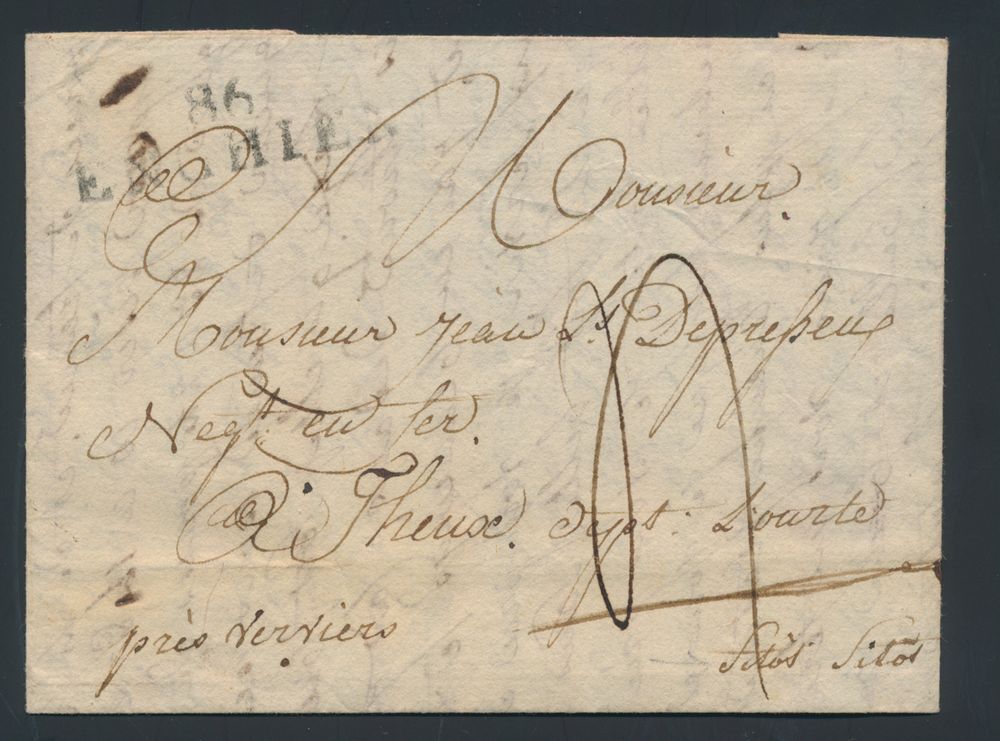 86
ENGHIEN
A Monsieur
Monsieur Jean Ls Depresseux
Negt en fer.
à Theux. dept. L'ourte
près Verviers
Sitôs Sitôs